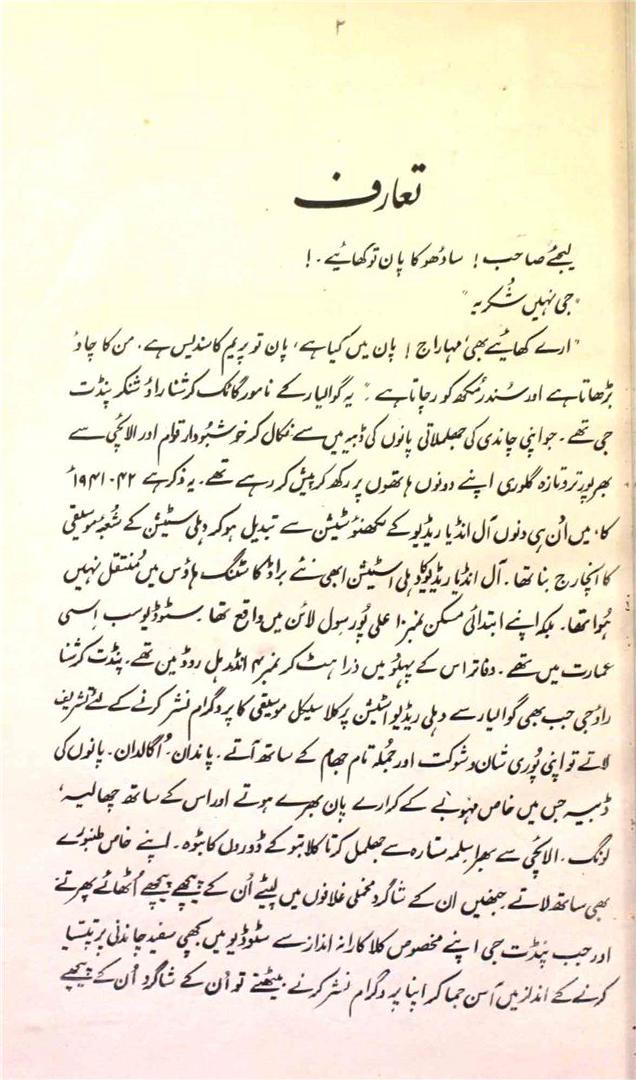 ۲
تعارف
لیجئے صاحب! سادُھو کا پان تو کھائیے۔!
"جی نہیں شُکریہ"
"ارے کھائیے بھی مہاراج! پان میں کیا ہے، پان تو پریم کا سندیس ہے۔ من کا چاؤ
بڑھاتا ہے اور سُندر مُکھ کو رچاتا ہے۔" یہ گوالیار کے نامور گائک کرشنا راؤ شنکر پنڈت
جی تھے۔ جو اپنی چاندی کی جھلملاتی پانوں کی ڈبیہ میں سے نکال کر خوشبودار قوام اور الائچی سے
بھرپور تروتازہ گلوری اپنے دونوں ہاتھوں پر رکھ کر پیش کر رہے تھے۔ یہ ذکر ہے ۴۲-۱۹۴۱ء
کا، میں اُن ہی دنوں آل انڈیا ریڈیو کے لکھنؤ سٹیشن سے تبدیل ہو کر دہلی سٹیشن کے شعبۂ موسیقی
کا انچارج بنا تھا۔ آل انڈیا ریڈیو کا دہلی اسٹیشن ابھی نئے براڈ کاسٹنگ ہاؤس میں مُنتقل نہیں
ہُوا تھا۔ بلکہ اپنے ابتدائی مسکن نمبر ۱۰ علی پُور سِول لائن میں واقع تھا۔ سٹوڈیو سب اِسی
عمارت میں تھے۔ دفاتر اس کے پہلُو میں ذرا ہٹ کر نمبر ۴ انڈر ہل روڈ میں تھے۔ پنڈت کرشنا
راؤ جی جب بھی گوالیار سے دہلی ریڈیو اسٹیشن پر کلاسیکل موسیقی کا پروگرام نشر کرنے کے لئے تشریف
لاتے تو اپنی پُوری شان و شوکت اور جُملہ تام جھام کے ساتھ آتے۔ پاندان۔ اُگالدان۔ پانوں کی
ڈبیہ جس میں خاص مہوبے کے کرارے پان بھرے ہوتے اور اس کے ساتھ چھالیہ،
لونگ۔ الائچی سے بھرا سلمہ ستارہ سے جھلمل کرتا کلابتو کے ڈوروں کا بٹوہ۔ اپنے خاص طنبورے
بھی ساتھ لاتے جنھیں ان کے شاگرد مخملی غلافوں میں لپیٹے اُن کے پیچھے پیچھے اُٹھائے پھرتے
اور جب پنڈت جی اپنے مخصوص کلاکارانہ انداز سے سٹوڈیو میں بچھی سفید چاندنی پر تپسیا
کرنے کے انداز میں آسن جما کر اپنا پروگرام نشر کرنے بیٹھتے تو اُن کے شاگرد اُن کے پیچھے